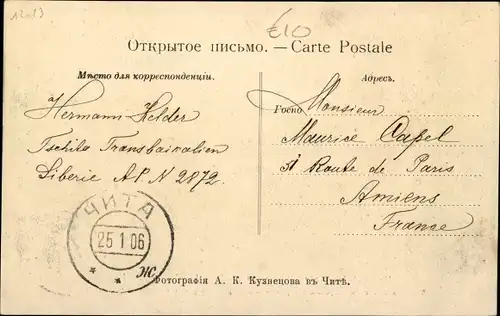 12013
€10
Открытое письмо. — Carte Postale
Мѣсто для корреспонденціи.
Адресъ.
Hermann Helder
Tschita Transbaikalien
Siberie AP. N 2872.
Госпо Monsieur
Maurice Capel
51 Route de Paris
Amiens
France
ЧИТА
25 1 06
* * Ж
Фотографія А. К. Кузнецова въ Читѣ.